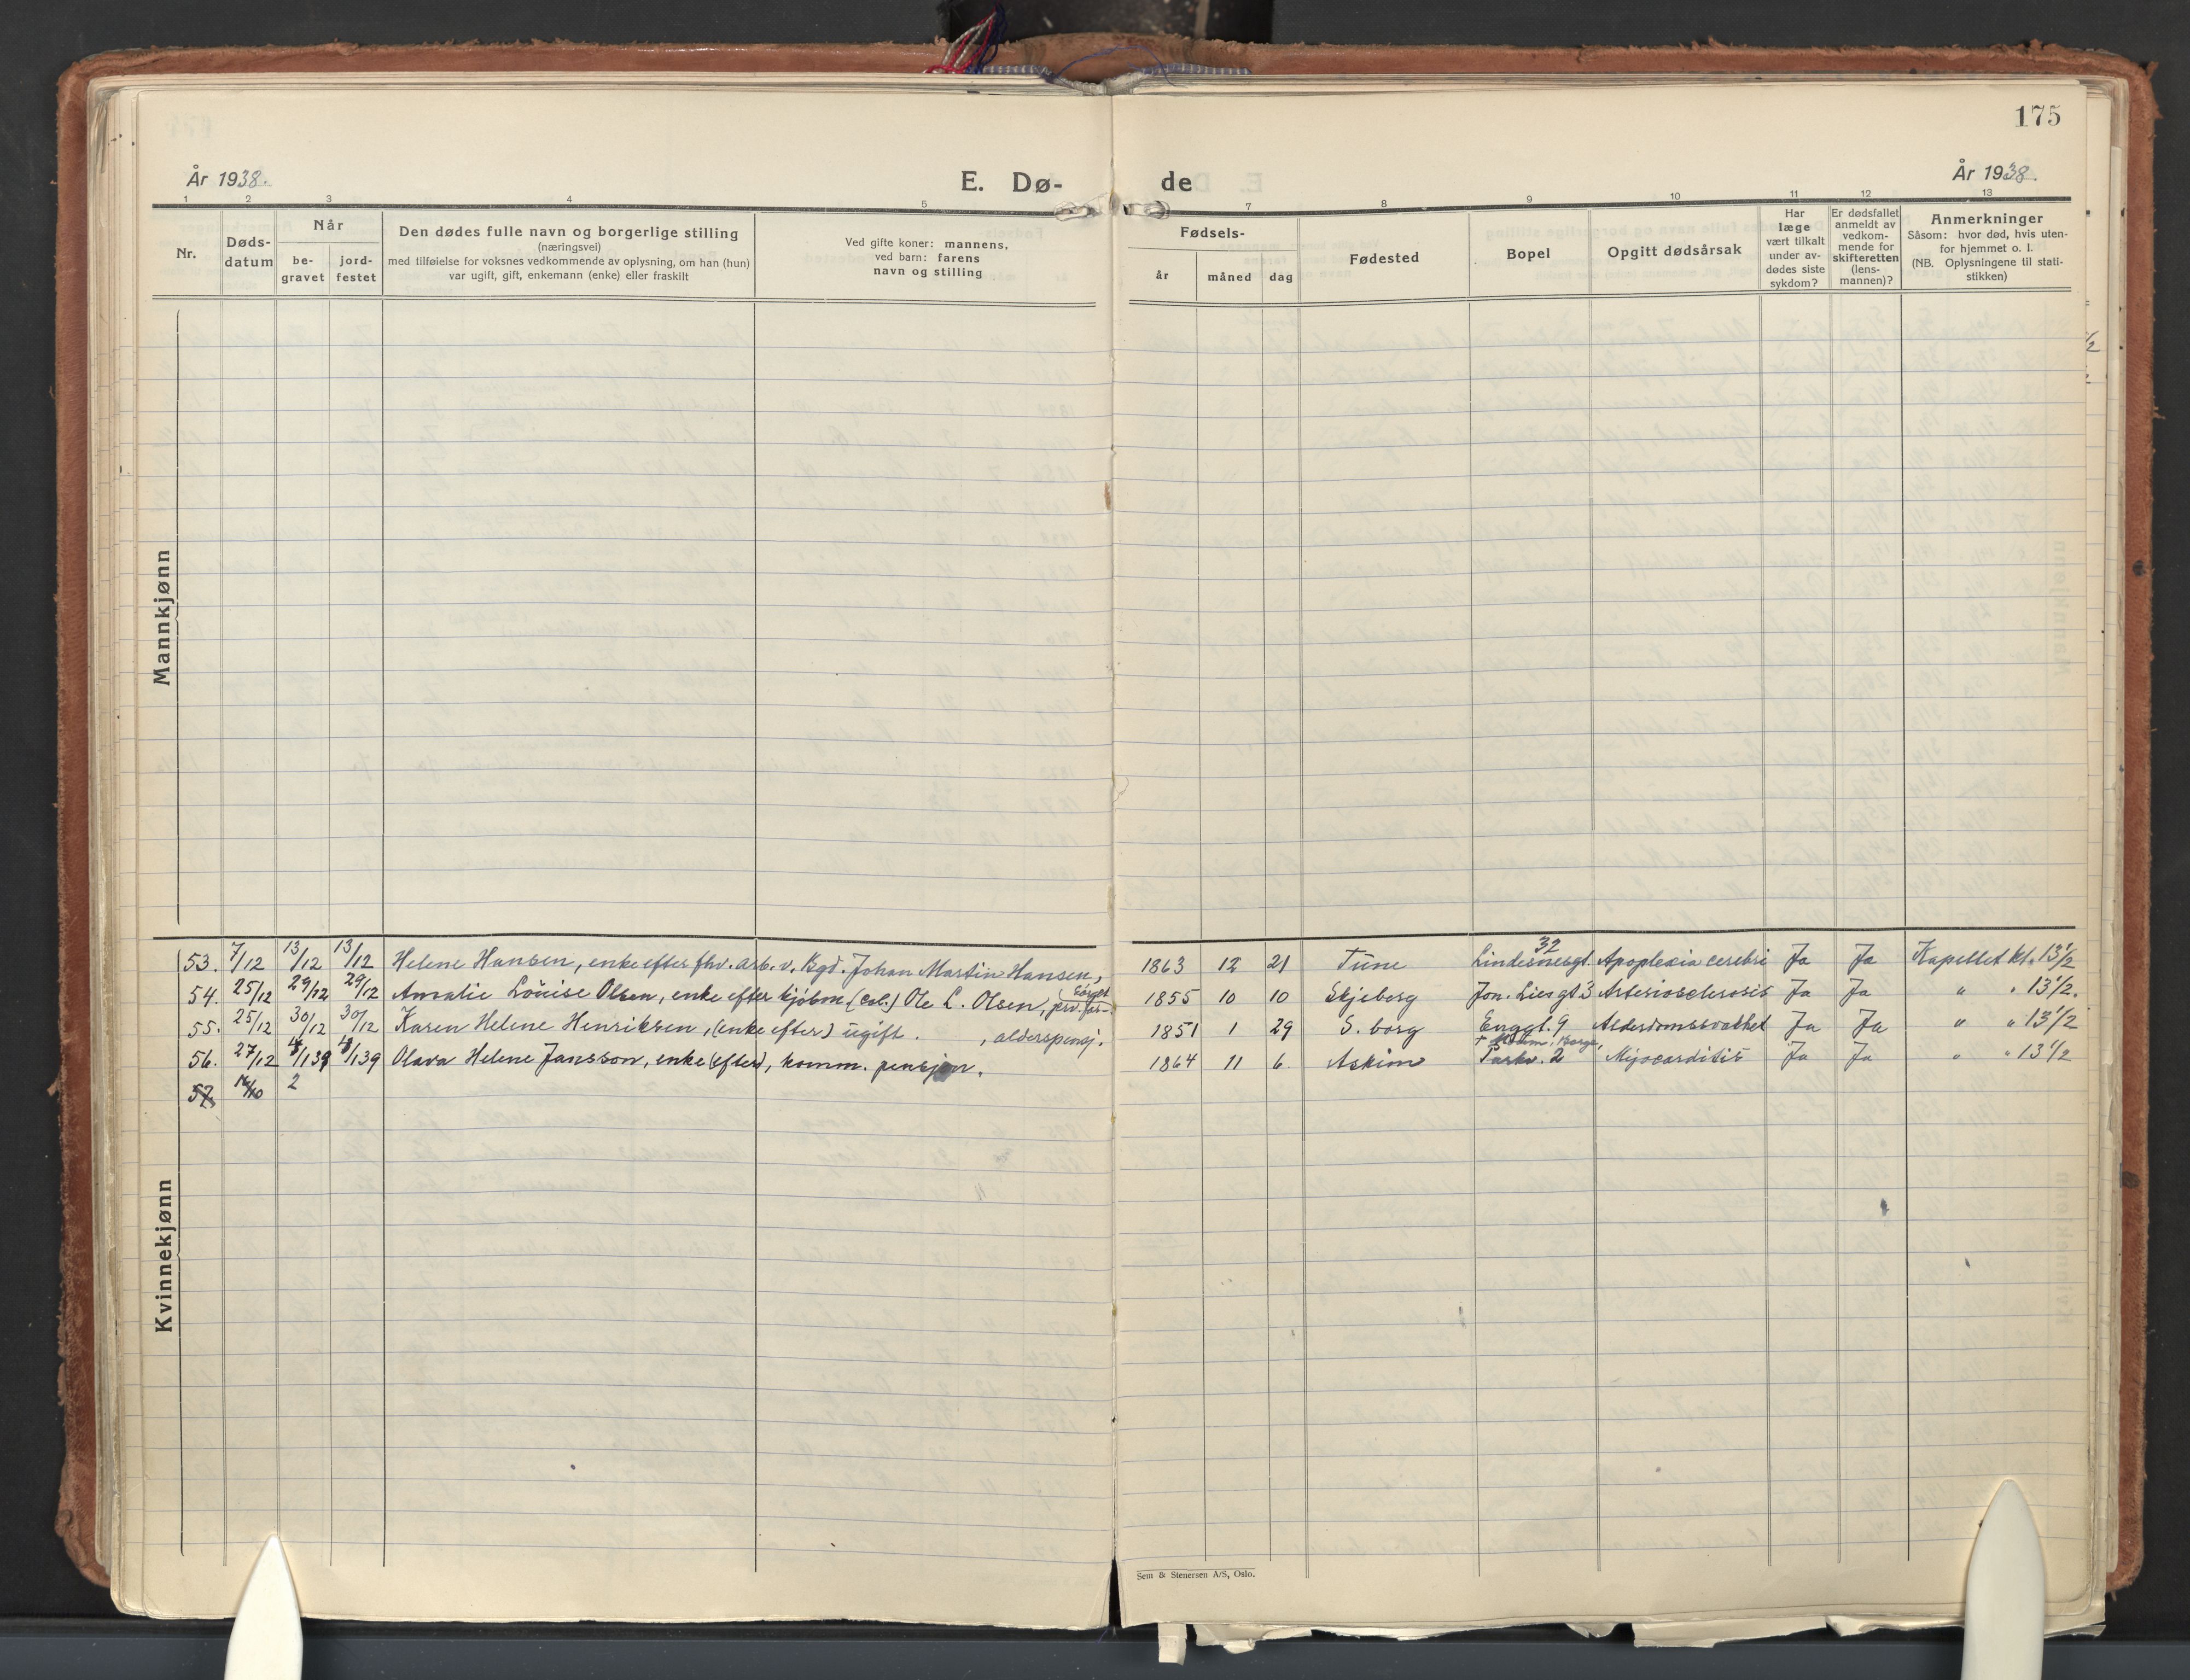 175
År 1938.
E. Dø-
de
År 1938.
1 2 3 4 5 7 8 9 10 11 12 13
Nr.
Døds-
datum
Når
be-
gravet
jord-
festet
Den dødes fulle navn og borgerlige stilling
(næringsvei)
med tilføielse for voksnes vedkommende av oplysning, om han (hun)
var ugift, gift, enkemann (enke) eller fraskilt
Ved gifte koner: mannens,
ved barn: farens
navn og stilling
Fødsels-
år
måned
dag
Fødested
Bopel
Opgitt dødsårsak
Har
læge
vært tilkalt
under av-
dødes siste
sykdom?
Er dødsfallet
anmeldt av
vedkom-
mende for
skifteretten
(lens-
mannen)?
Anmerkninger
Såsom: hvor død, hvis uten-
for hjemmet o. l.
(NB. Oplysningene til stati-
stikken)
Mannkjønn
53. 7/12 13/12 13/12 Helene Hansen, enke efter fhv. arb. v. Bgd. Johan Martin Hansen, 1863 12 21 Tune Lindesnesgt. 32 Apoplexia cerebri Ja Ja Kapellet kl. 13 1/2
54. 25/12 29/12 29/12 Amalie Louise Olsen, enke efter Ole L. Olsen, 1855 10 10 Skjeberg Jon. Lies gt 3 Arteriosclerosis Ja Ja " " 13 1/2.
55. 25/12 30/12 30/12 Karen Helene Henriksen, (enke efter) ugift. , alderspensj. 1851 1 29 S. borg Enggt. 9 Alderdomssvakhet Ja Ja " " 13 1/2
56. 27/12 /1 39 /1 39 Olava Helene Jansson, enke (efter), komm. pensjon. 1864 11 6. Askim Parkv. 2 Myocarditis Ja Ja " " 13 1/2
57. 2
Kvinnekjønn
Sem & Stenersen A/S, Oslo.